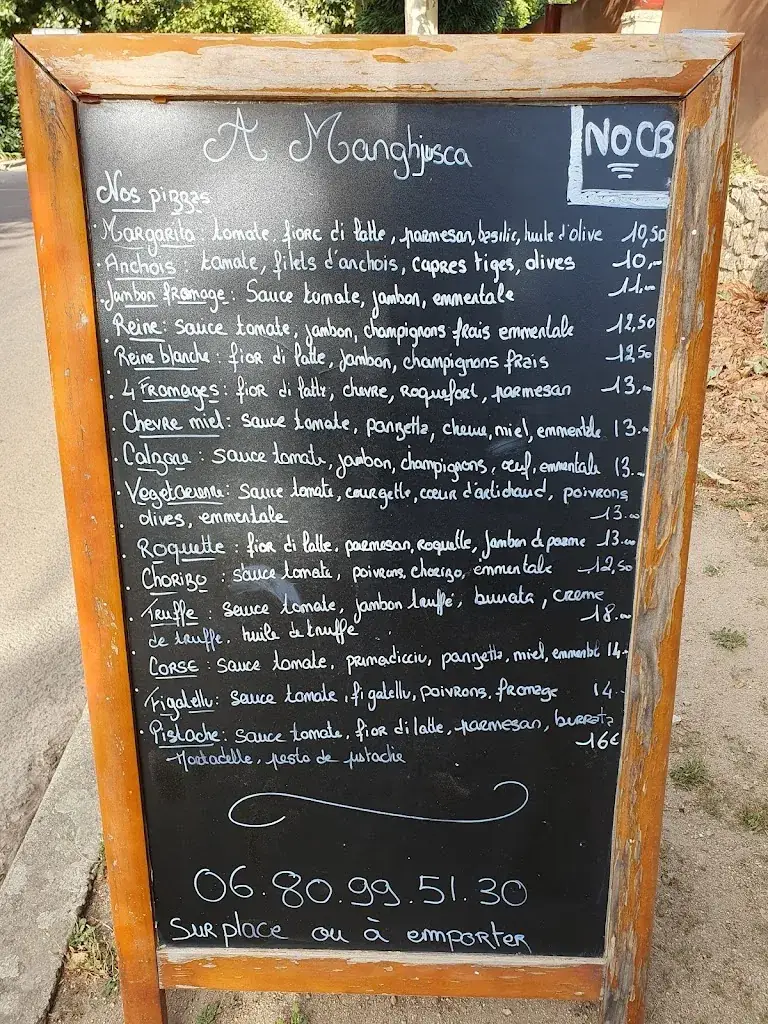 A Manghjusca
NO CB
Nos pizzas
· Margarita : tomate, fiore di latte, parmesan, basilic, huile d'olive 10,50
· Anchois : tomate, filets d'anchois, capres tiges, olives 10,-
· Jambon fromage : Sauce tomate, jambon, emmentale 11.-
· Reine : sauce tomate, jambon, champignons frais emmentale 12,50
· Reine blanche : fior di latte, jambon, champignons frais 12,50
· 4 Fromages : fior di latte, chevre, roquefort, parmesan 13.-
· Chevre miel : sauce tomate, panzetta, chevre, miel, emmentale 13.-
· Calzone : sauce tomate, jambon, champignons, oeuf, emmentale 13.-
· Vegetarienne : sauce tomate, courgette, coeur d'artichaud, poivrons
olives, emmentale 13.-
· Roquette : fior di latte, parmesan, roquette, jambon de parme 13.-
· Chorizo : sauce tomate, poivrons, chorizo, emmentale 12,50
· Truffe : sauce tomate, jambon truffé, burrata, creme
de truffe, huile de truffe 18.-
· CORSE : sauce tomate, primadicciu, panzetta, miel, emmental 14.-
· Figatellu : sauce tomate, figatellu, poivrons, fromage 14.-
· Pistache : sauce tomate, fior di latte, parmesan, burrata
Mortadelle, pesto de pistache 16€
06.80.99.51.30
Sur place ou à emporter